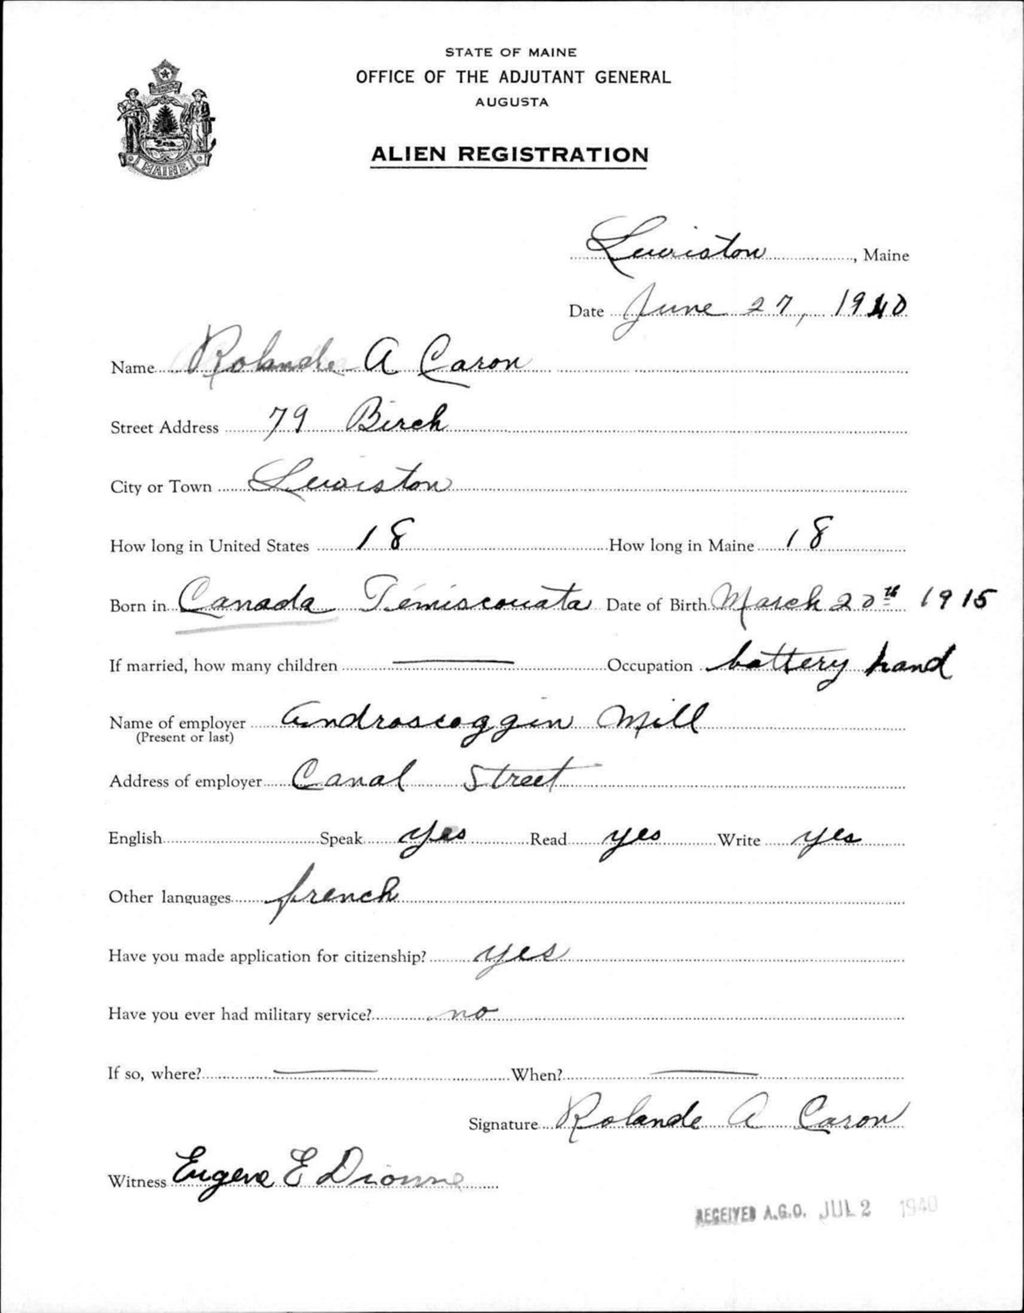 STATE OF MAINE
OFFICE OF THE ADJUTANT GENERAL
AUGUSTA
ALIEN REGISTRATION
MAINE
Lewiston, Maine
Date June 27, 1940
Name Rolande A Caron
Street Address 79 Birch
City or Town Lewiston
How long in United States 18 How long in Maine 18
Born in Canada Témiscouata Date of Birth March 20th 1915
If married, how many children — Occupation battery hand
Name of employer Androscoggin Mill
(Present or last)
Address of employer Canal Street
English Speak yes Read yes Write yes
Other languages french
Have you made application for citizenship? yes
Have you ever had military service? no
If so, where? — When? —
Signature Rolande A Caron
Witness Eugene E Dionne
RECEIVED A.G.O. JUL 2 1940